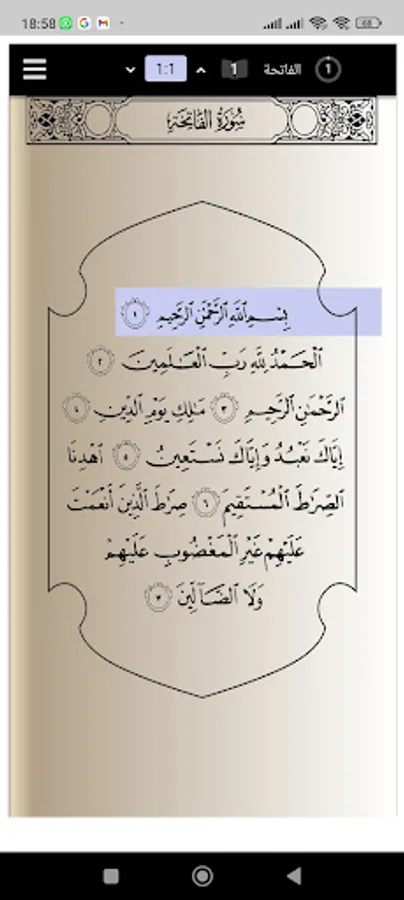 18:58 68
1:1 1 الفاتحة 1
سُورَةُ الفَاتِحَةِ
بِسْمِ ٱللَّهِ ٱلرَّحْمَٰنِ ٱلرَّحِيمِ ١
ٱلْحَمْدُ لِلَّهِ رَبِّ ٱلْعَٰلَمِينَ ٢
ٱلرَّحْمَٰنِ ٱلرَّحِيمِ ٣ مَٰلِكِ يَوْمِ ٱلدِّينِ ٤
إِيَّاكَ نَعْبُدُ وَإِيَّاكَ نَسْتَعِينُ ٥ ٱهْدِنَا
ٱلصِّرَٰطَ ٱلْمُسْتَقِيمَ ٦ صِرَٰطَ ٱلَّذِينَ أَنْعَمْتَ
عَلَيْهِمْ غَيْرِ ٱلْمَغْضُوبِ عَلَيْهِمْ
وَلَا ٱلضَّآلِّينَ ٧